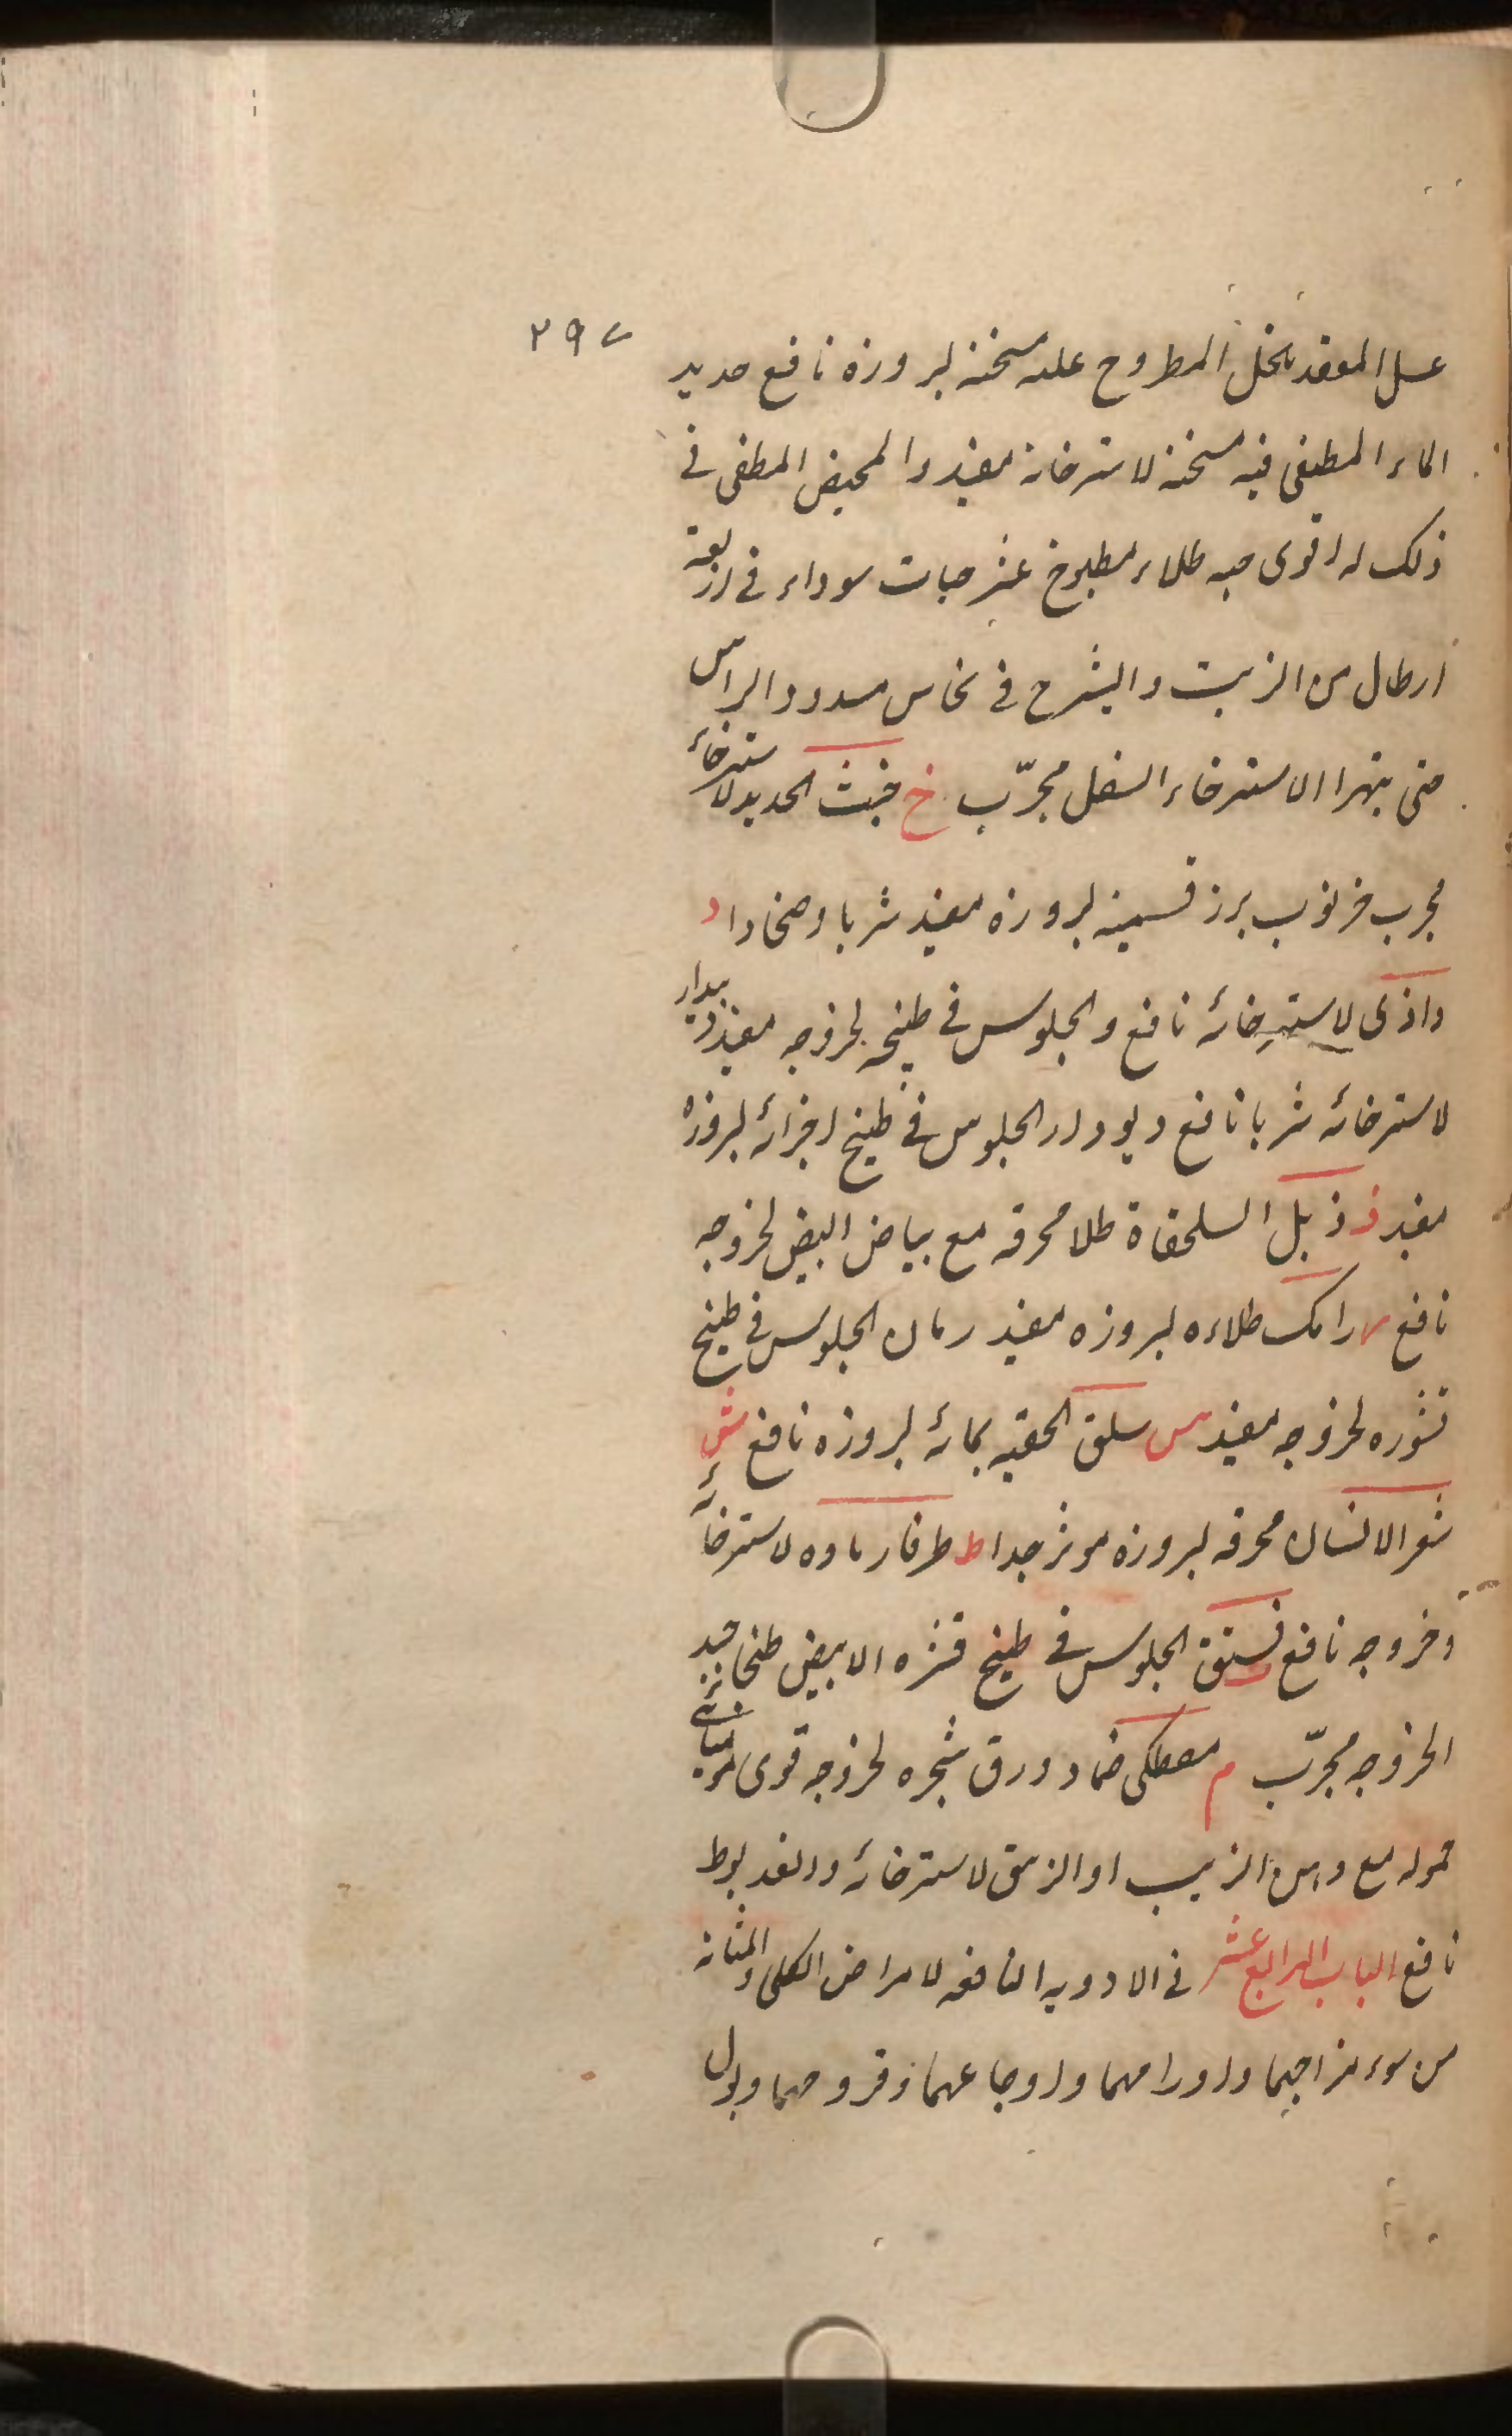 ٢٩٧
غسل المقعد بالخل المطروح عليه سخنة لبروزه نافع حديد
الماء المطفى فيه سخنة لاسترخائه مفيد والمخيض المطفى فى
ذلك له اقوى حيه طلاء مطبوخ عشر حيات سوداء فى اربعة
ارطال من الزيت والشيرج فى نحاس مسدود الراس
حتى يتهرا الاسترخاء السفل مجرّب خ خبث الحديد لاسترخائه
مجرب خرنوب برز قسمية لبروزه مفيد شربا وضمادا د
داذى لاسترخائه نافع والجلوس فى طبيخه لخروجه مفيد ديدار
لاسترخائه شربا نافع ديودار الجلوس فى طبيخ اجزائه لبروزه
مفيد ذ ذبل السلحفاة طلا محرقه مع بياض البيض لخروجه
نافع ر رامك طلاءه لبروزه مفيد رمان الجلوس فى طبيخ
قشوره لخروجه مفيد س سلق الحقنه بمائه لبروزه نافع ش
شعر الانسان محرقه لبروزه موثر جدا ط طرفا رماده لاسترخائه
وخروجه نافع فستق الجلوس فى طبيخ قشره الابيض طبخا جيد
الخروجه مجرّب م مصطكى ضماد ورق شجره لخروجه قوى موميائى
حموله مع دهن الزنبق او الزيبق لاسترخائه
نافع الباب الرابع عشر فى الادويه النافعه لامراض الكلى والمثانه
من سوء مزاجهما واورامهما واوجاعهما وقروحهما وبول